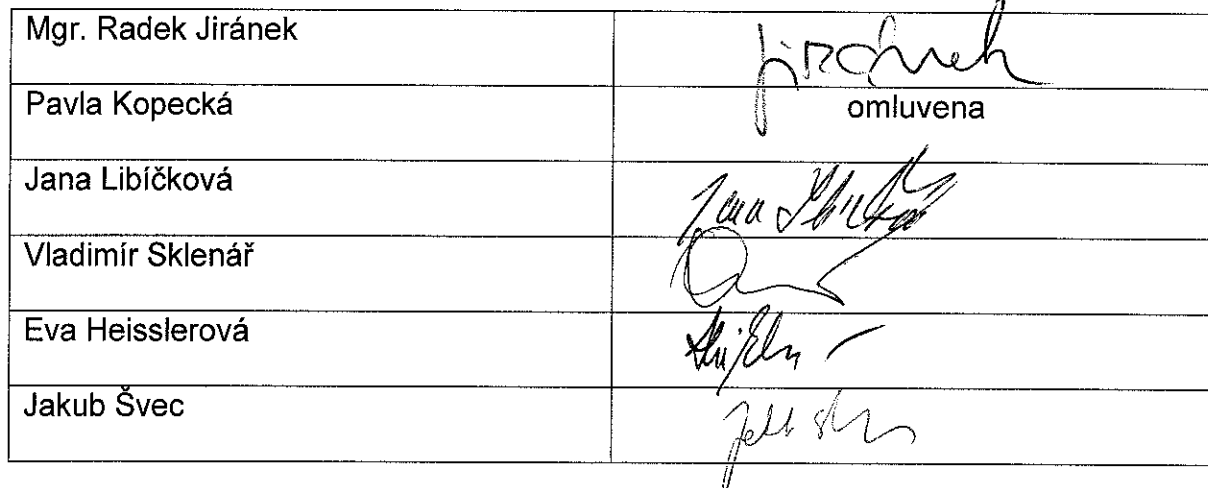 Mgr. Radek Jiránek
Jiránek
Pavla Kopecká
omluvena
Jana Libíčková
Jana
Vladimír Sklenář
Eva Heisslerová
Jakub Švec